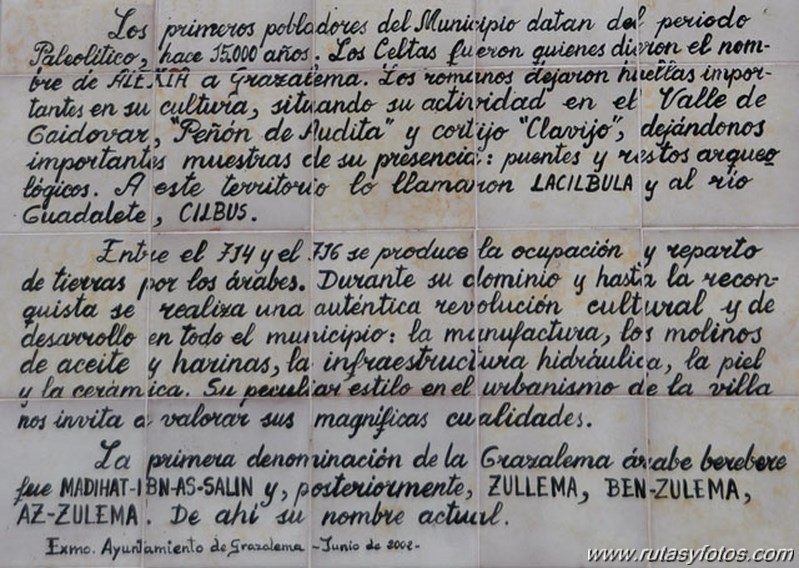 Los primeros pobladores del Municipio datan del periodo
Paleolítico, hace 15.000 años. Los Celtas fueron quienes dieron el nom-
bre de ALEXIA a Grazalema. Los romanos dejaron huellas impor-
tantes en su cultura, situando su actividad en el Valle de
Gaidovar, "Peñón de Audita" y cortijo "Clavijo", dejándonos
importantes muestras de su presencia: puentes y restos arqueo
lógicos. A este territorio lo llamaron LACILBULA y al río
Guadalete, CILBUS.
Entre el 714 y el 716 se produce la ocupación y reparto
de tierras por los árabes. Durante su dominio y hasta la recon-
quista se realiza una auténtica revolución cultural y de
desarrollo en todo el municipio: la manufactura, los molinos
de aceite y harinas, la infraestructura hidráulica, la piel
y la cerámica. Su peculiar estilo en el urbanismo de la villa
nos invita a valorar sus magníficas cualidades.
La primera denominación de la Grazalema árabe berebere
fue MADIHAT-IBN-AS-SALIN y, posteriormente, ZULLEMA, BEN-ZULEMA,
AZ-ZULEMA. De ahí su nombre actual.
Exmo. Ayuntamiento de Grazalema - Junio de 2002-
www.rutasyfotos.com